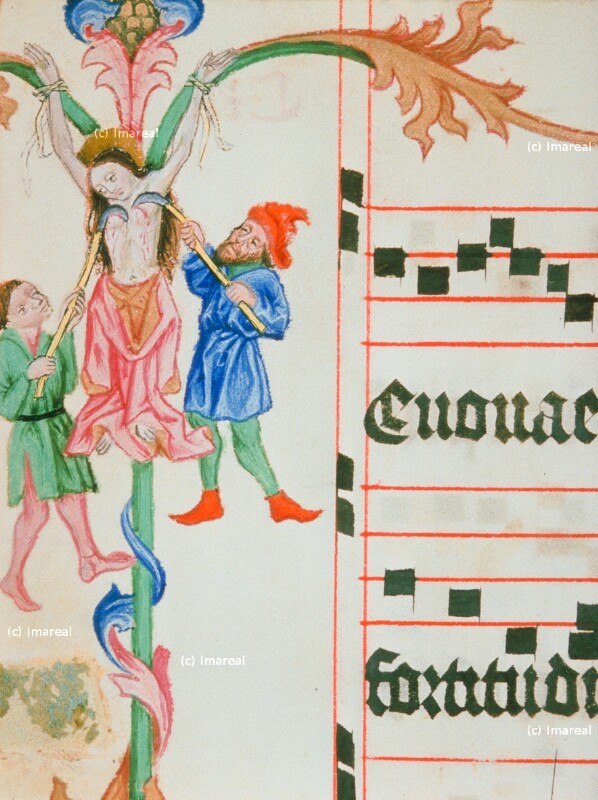 (c) Imareal
(c) Imareal
Euouae
(c) Imareal
(c) Imareal
fortitudi
(c) Imareal